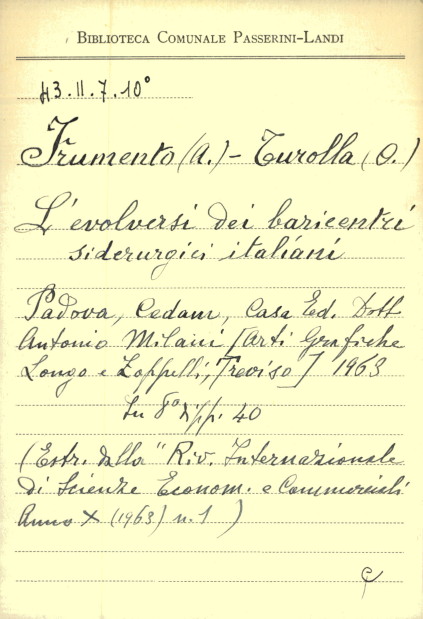 BIBLIOTECA COMUNALE PASSERINI-LANDI
43.II.7.10°
Frumento (A.) - Turolla (O.)
L'evolversi dei baricentri
siderurgici italiani
Padova, Cedam, Casa Ed. Dott
Antonio Milani [Arti Grafiche
Longo e Zoppelli, Treviso] 1963
In 8° di pp. 40
(Estr. dalla "Riv. Internazionale
di Scienze Econom. e Commerciali
Anno X (1963) n. 1)